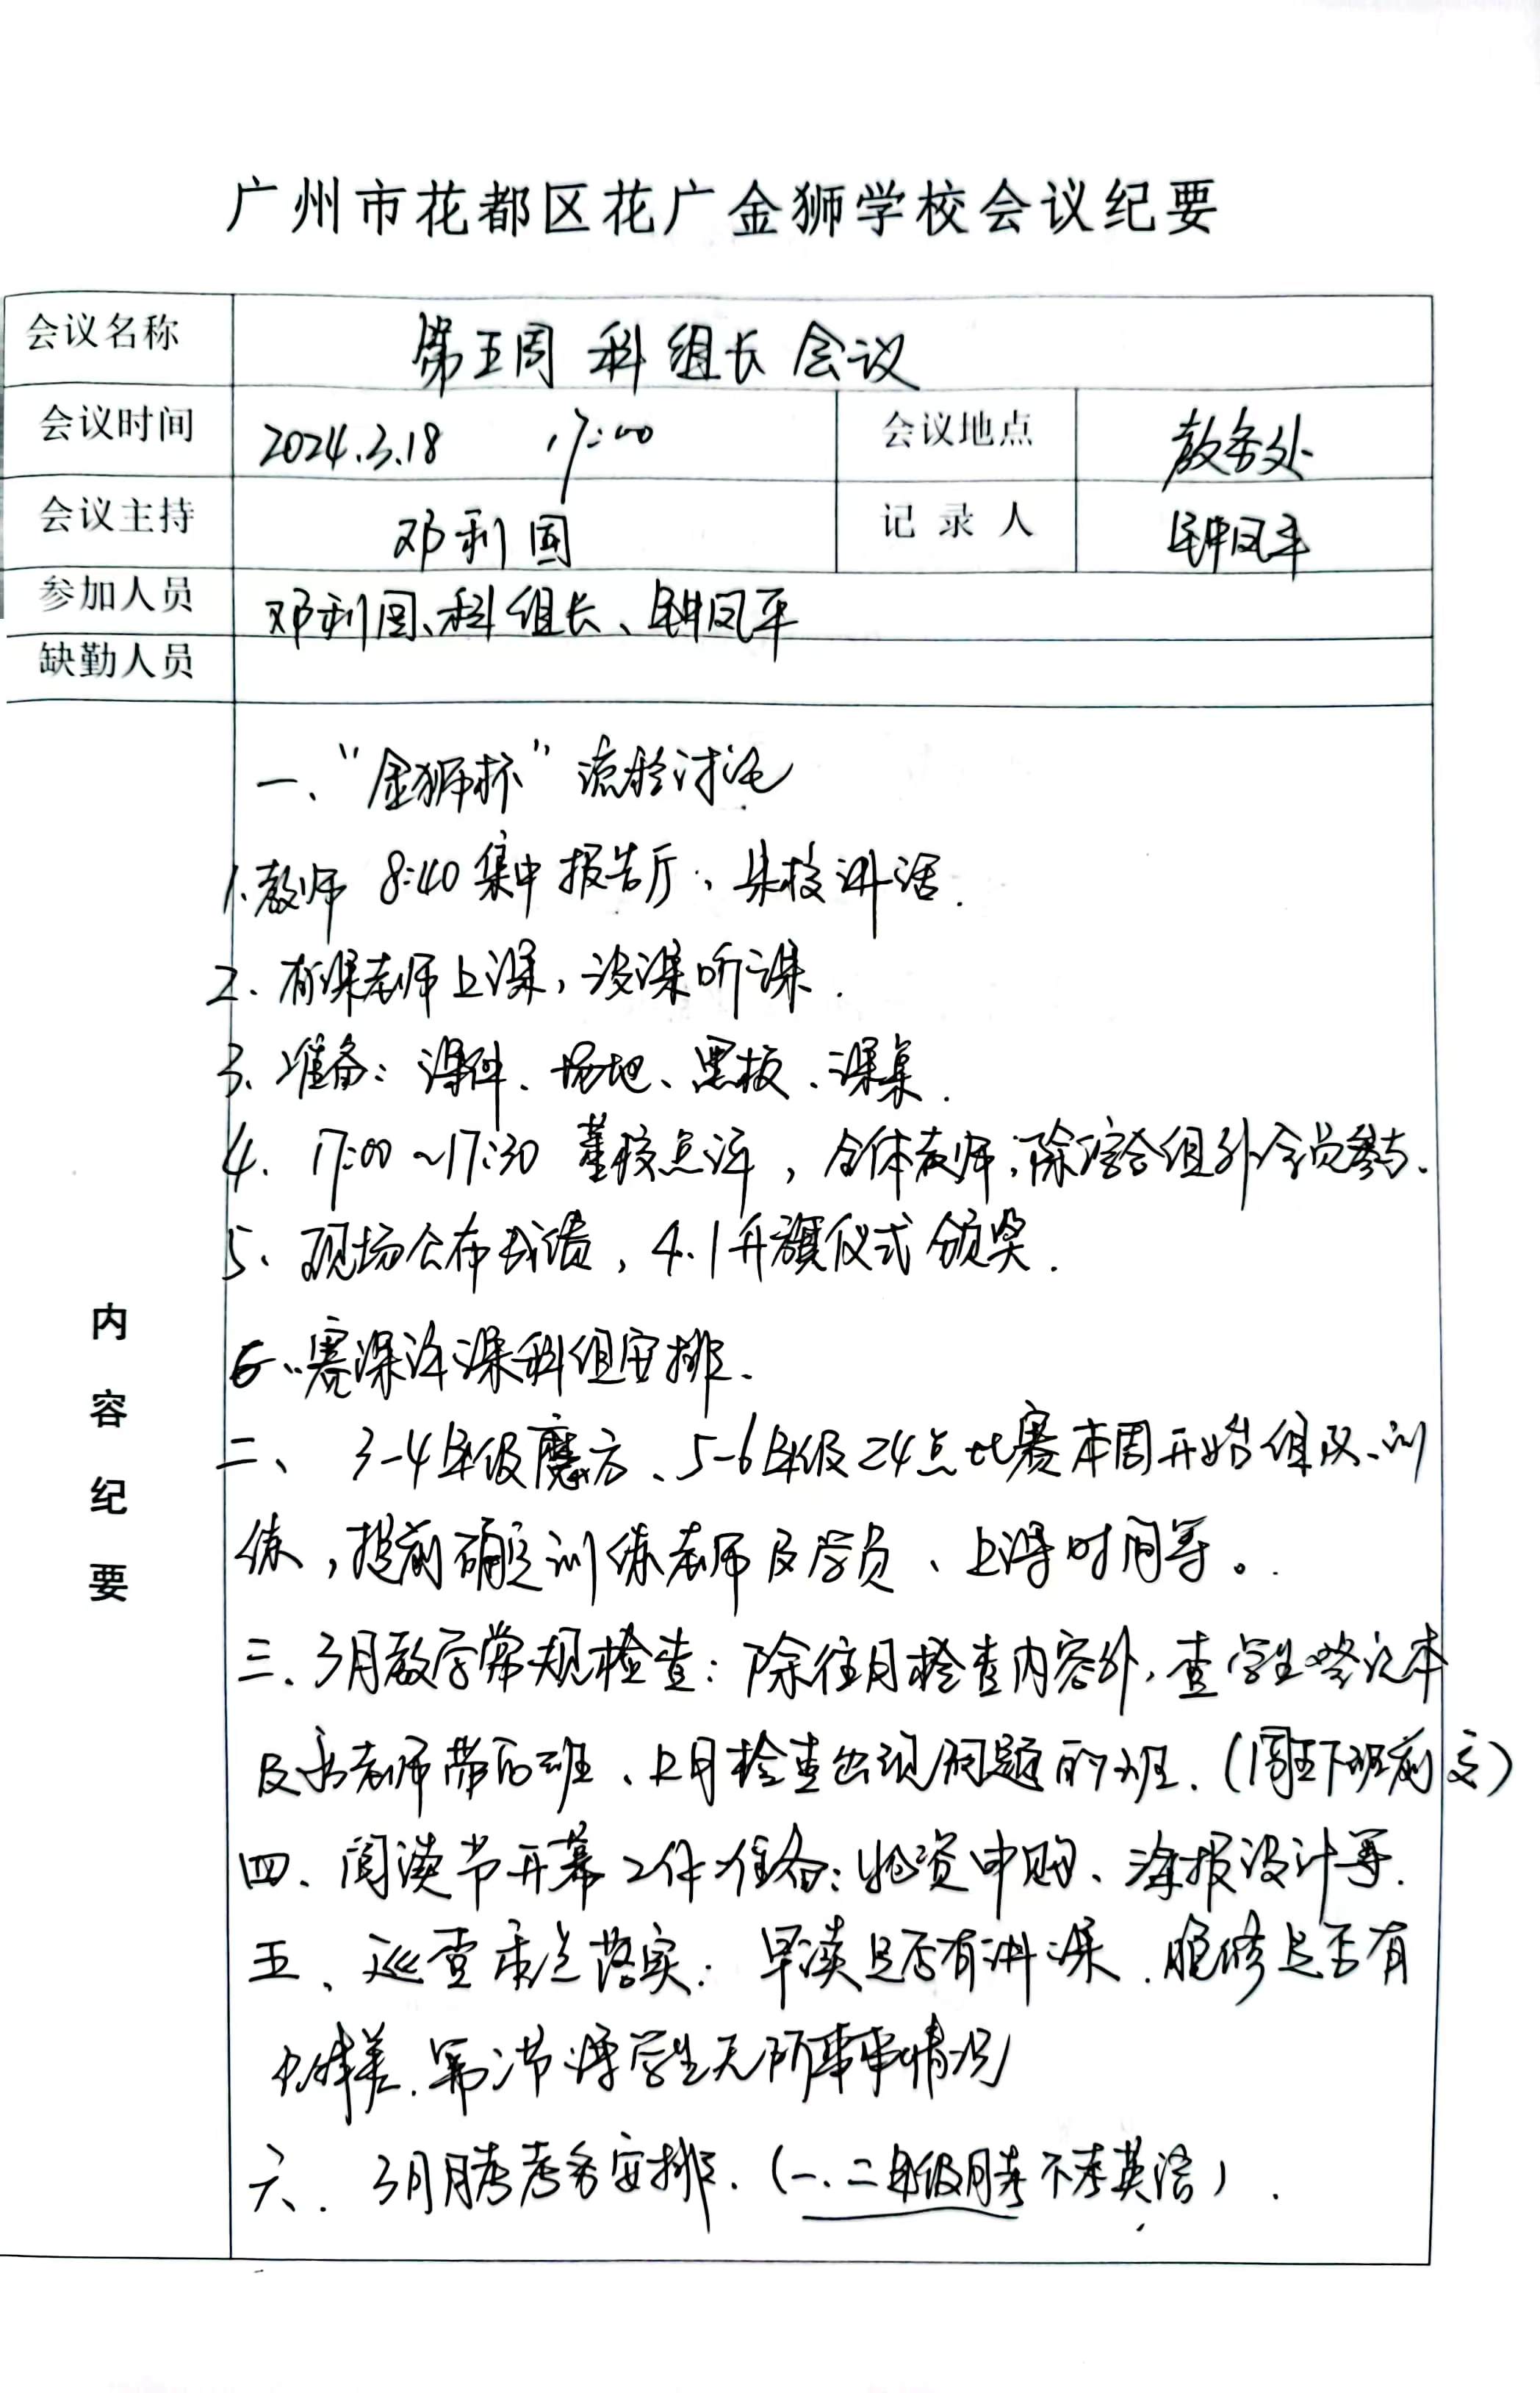 广州市花都区花广金狮学校会议纪要
会议名称 第五周科组长会议
会议时间 2024.3.18 17:00 会议地点 教务处
会议主持 邓利国 记录人 钟凤平
参加人员 邓利国、科组长、钟凤平
缺勤人员
内容纪要
一、“金狮杯”流程讨论
1、教师 8:40 集中报告厅、朱校讲话.
2、有课老师上课，没课听课.
3、准备：课件、场地、黑板、课桌.
4、17:00~17:30 董校点评，全体教师，除综合组外全员参与.
5、现场公布成绩，4.1升旗仪式颁奖.
6、赛课评课科组安排.
二、3-4年级魔方、5-6年级24点比赛本周开始组队、训
练，提前确定训练老师及学员、上课时间等。
三、3月教学常规检查：除往月检查内容外，查学生笔记本
及新老师带的班、上月检查出现问题的班.（周五下班前交）
四、阅读节开幕工作准备：物资申购、海报设计等.
五、巡查重点落实：早读是否有讲课、晚修是否有
、第二节课学生无所事事情况
六、3月月考考务安排.（一、二年级月考不考英语）.